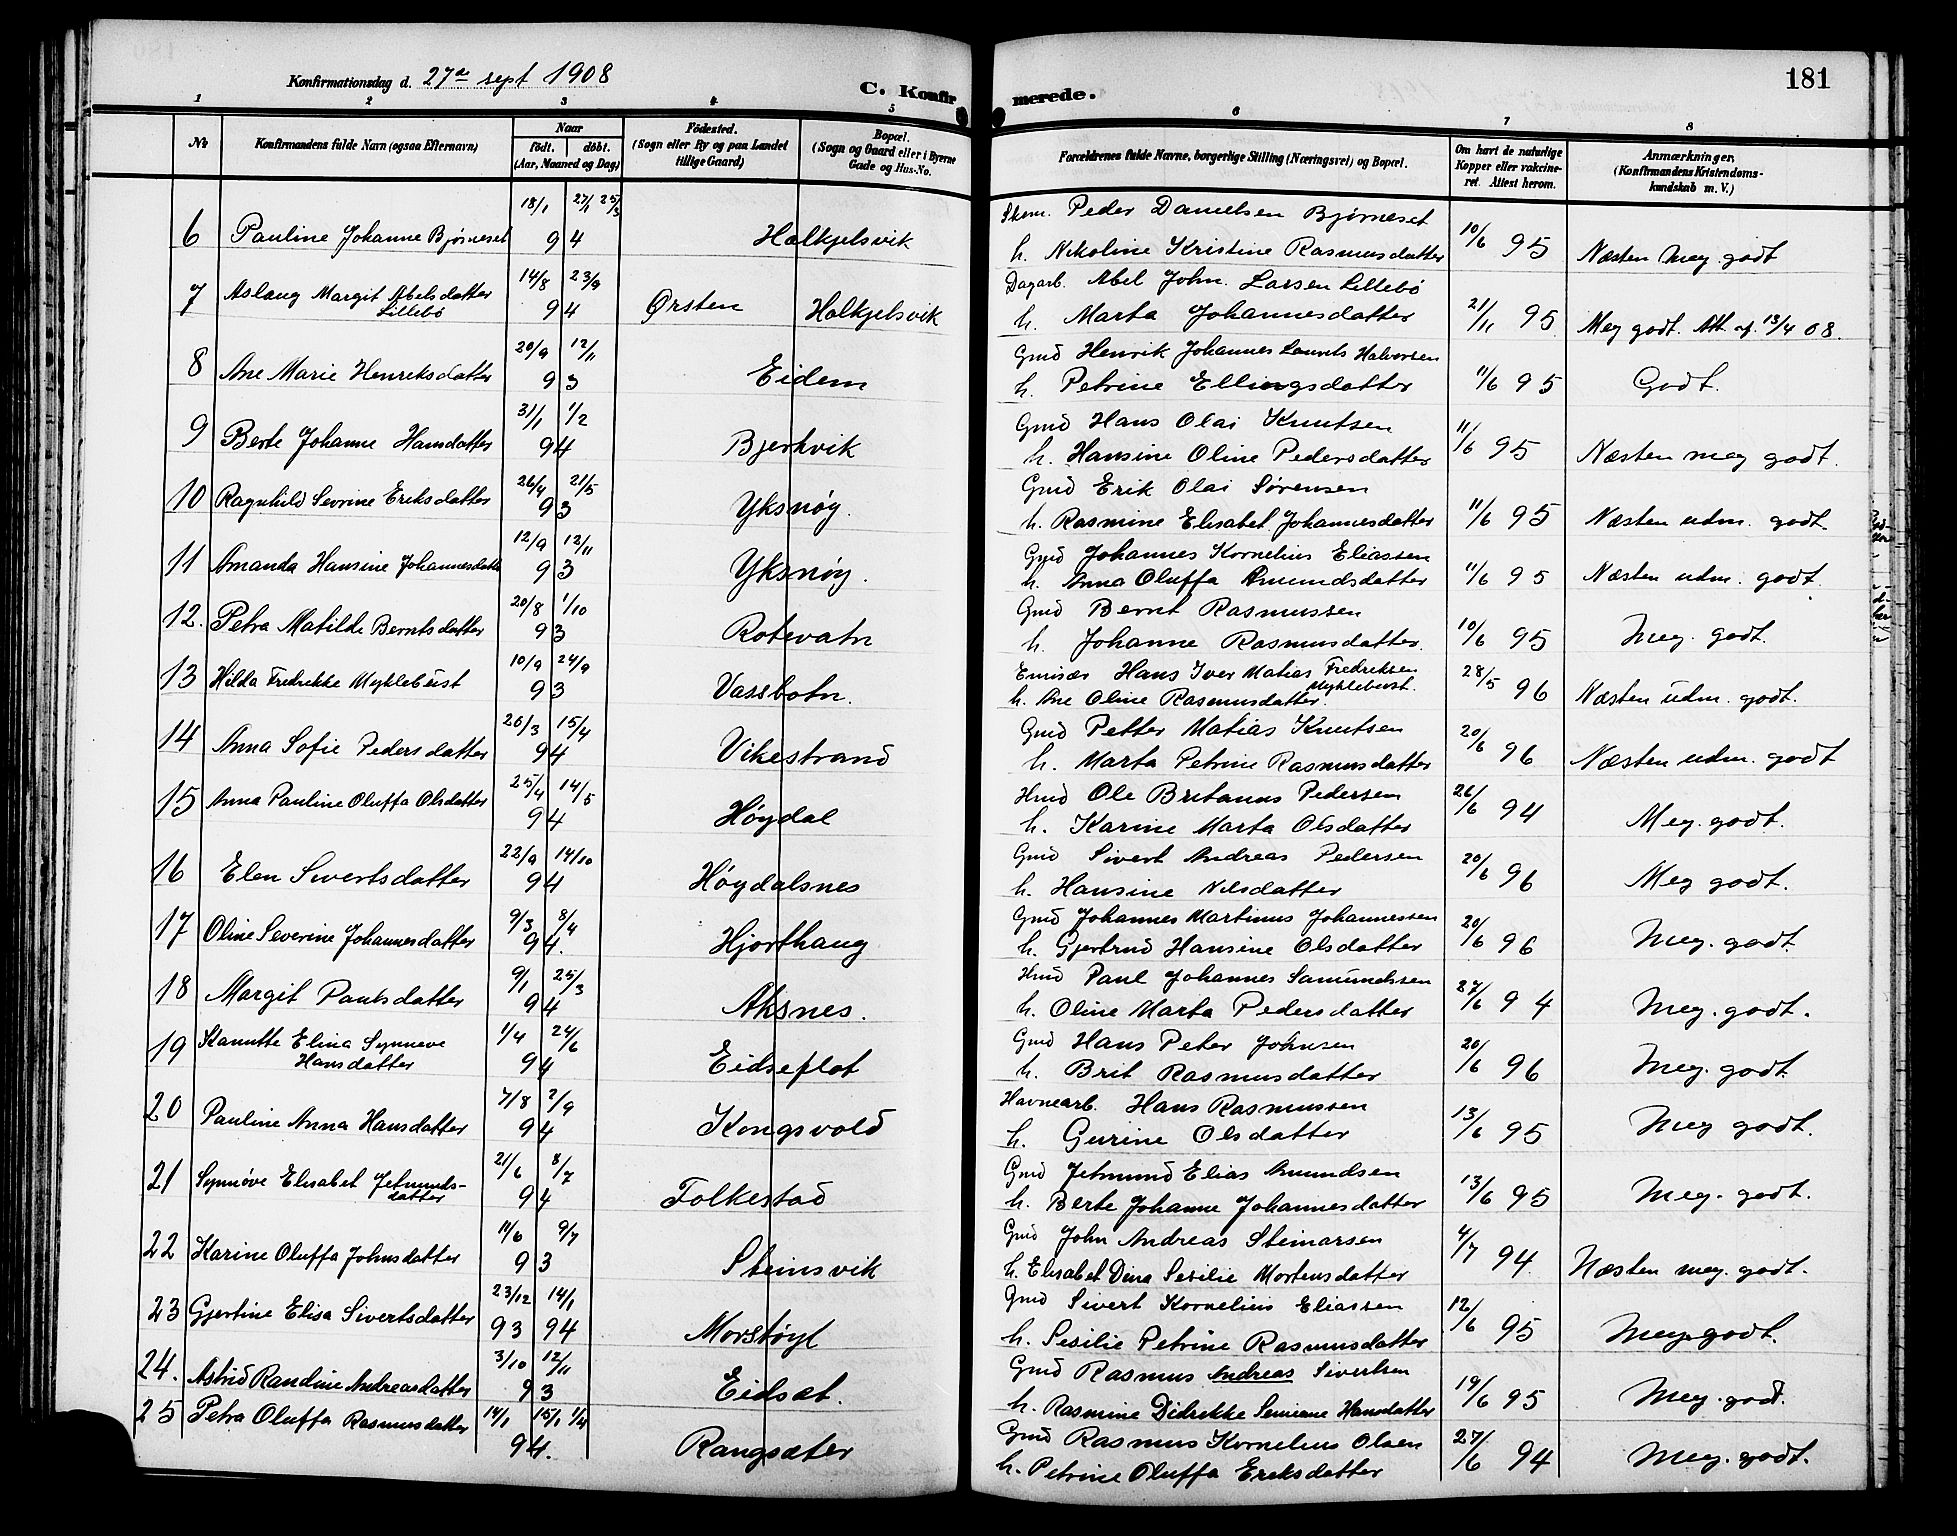 Konfirmationsdag d. 27de sept 1908
C. Konfirmerede.
181
1 2 3 4 5 6 7 8
No
Konfirmandens fulde Navn (ogsaa Efternavn)
Naar
født. døbt.
(Aar, Maaned og Dag)
Fødested.
(Sogn eller By og paa Landet tillige Gaard)
Bopæl.
(Sogn og Gaard eller i Byerne Gade og Hus-No.
Forældrenes fulde Navne, borgerlige Stilling (Næringsvei) og Bopæl.
Om havt de naturlige Kopper eller vakcineret. Attest herom.
Anmærkninger,
(Konfirmandens Kristendomskundskab m. V.)
6 Pauline Johanne Bjørneset 18/1 27/1 25/3 94 Halkjelsvik Peder Danielsen Bjørneset
h. Nikoline Kristine Rasmusdatter 10/6 95 Næsten meg. godt
7 Aslaug Margit Abelsdatter Lillebø 14/8 23/9 94 Ørsten Halkjelsvik Dagarb. Abel John. Larsen Lillebø
h. Marta Johannesdatter 21/11 95 Meg godt. Att. af 13/4 08.
8 Ane Marie Henriksdatter 20/9 12/11 93 Eidem Gmd Henrik Johannes Laurits Halvorsen
h. Petrine Ellingsdatter 11/6 95 Godt.
9 Berte Johanne Hansdatter 31/1 1/2 94 Bjerkvik Gmd Hans Olai Knutsen
h. Hansine Oline Pedersdatter 11/6 95 Næsten meg godt.
10 Ragnhild Sevrine Eriksdatter 26/4 21/5 93 Yksnøy. Gmd Erik Olai Sørensen
h. Rasmine Elisabet Johannesdatter 11/6 95 Næsten udm. godt
11 Amanda Hansine Johannesdatter 12/9 12/11 93 Yksnøy. Gmd Johannes Kornelius Eliassen
h. Anna Oluffa Amundsdatter 11/6 95 Næsten udm. godt.
12. Petra Matilde Berntsdatter 20/8 1/10 93 Rotevatn Gmd Bernt Rasmussen
h. Johanne Rasmusdatter. 10/6 95 Meg. godt.
13 Hilda Fredrikke Myklebust 10/9 24/9 93 Vassbotn. Emisær Hans Iver Matias Fredriksen Myklebust.
h. Ane Oline Rasmusdatter. 28/5 96 Næsten udm. godt.
14 Anna Sofie Pedersdatter 26/3 15/4 94 Vikestrand Gmd Petter Matias Knutsen
h. Marta Petrine Rasmusdatter 20/6 96 Næsten udm. godt
15 Anna Pauline Oluffa Olsdatter 25/4 14/5 94 Høydal Hmd Ole Britanus Pedersen
h. Karine Marta Olsdatter 26/6 94 Meg. godt.
16 Elen Sivertsdatter 22/9 14/10 94 Høydalsnes Gmd Sivert Andreas Pedersen
h. Hansine Nilsdatter 20/6 96 Meg godt.
17 Oline Severine Johannesdatter 9/3 8/4 94. Hjorthaug Gmd Johannes Martinus Johannessen
h. Gjertrud Hansine Olsdatter 20/6 96 Meg. godt.
18 Margit Paulsdatter 9/1 25/3 94 Aksnes. Hmd Paul Johannes Samundsen
h. Oline Marta Pedersdatter 27/6 94 Meg. godt.
19 Kanutte Elina Synneve Hansdatter 1/4 24/6 94 Eidseflot Gmd Hans Peter Johnsen
h. Brit Rasmusdatter 20/6 96 Meg. godt.
20 Pauline Anna Hansdatter 7/8 2/9 94 Kongsvold Havnearb. Hans Rasmussen
h. Gurine Olsdatter 13/6 95 Meg godt.
21 Synnøve Elisabet Jetmundsdatter 21/6 8/7 94 Folkestad Gmd Jetmund Elias Amundsen
h. Berte Johanne Johannesdatter 13/6 95 Meg. godt.
22 Karine Oluffa Johnsdatter 11/6 9/7 93 Steinsvik Gmd John Andreas Steinarsen
h. Elisabet Dina Sesilie Mortensdatter 4/7 94. Næsten meg. godt.
23 Gjertine Elisa Sivertsdatter 23/12 93 14/1 94 Morstøyl Gmd Sivert Kornelius Eliassen
h. Sesilie Petrine Rasmusdatter 12/6 95 Meg. godt.
24. Astrid Randine Andreasdatter 3/10 12/11 93 Eidsæt. Gmd Rasmus Andreas Sivertsen
h. Rasmine Didrikke Hansdatter 19/6 95 Meg. godt.
25 Petra Oluffa Rasmusdatter 14/1 15/1 1/4 94. Rangsæter Gmd Rasmus Kornelius Olsen
h. Petrine Oluffa Eriksdatter 27/6 94 Meg. godt.